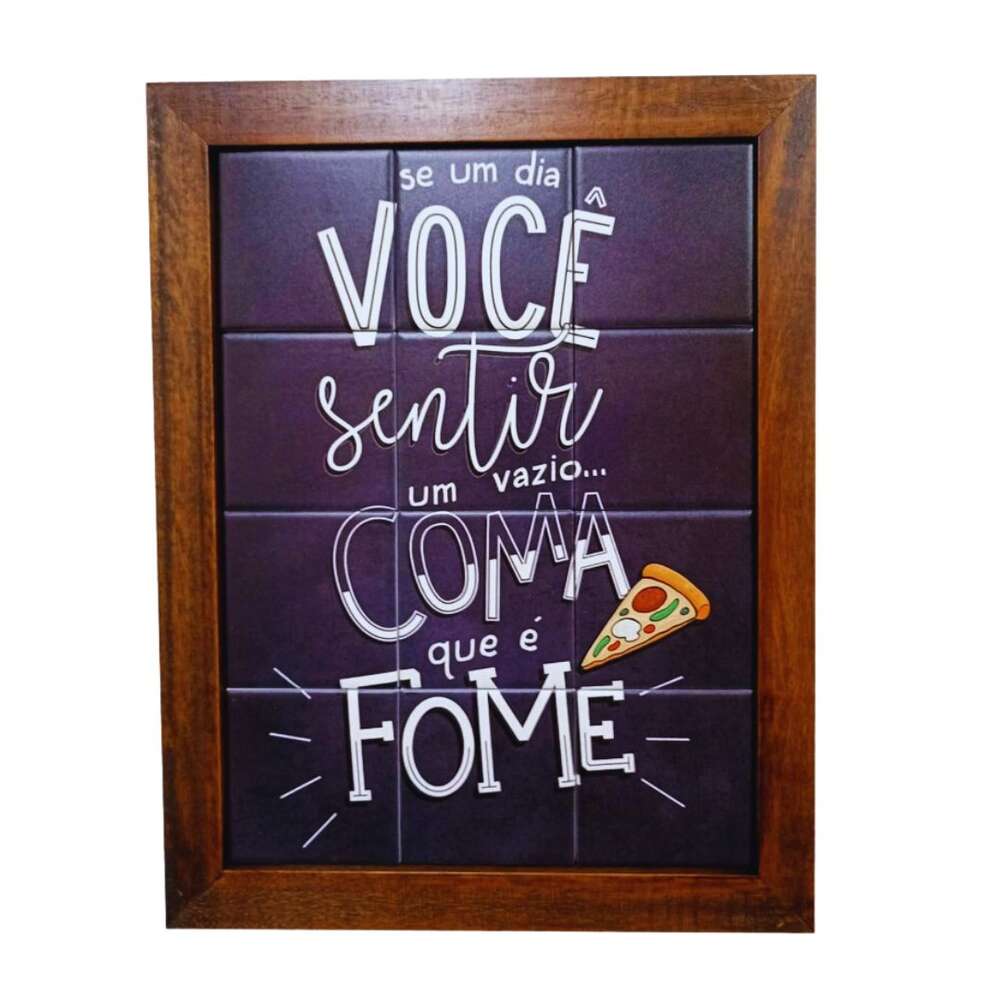 se um dia
VOCÊ
sentir
um vazio...
COMA
que é
FOME